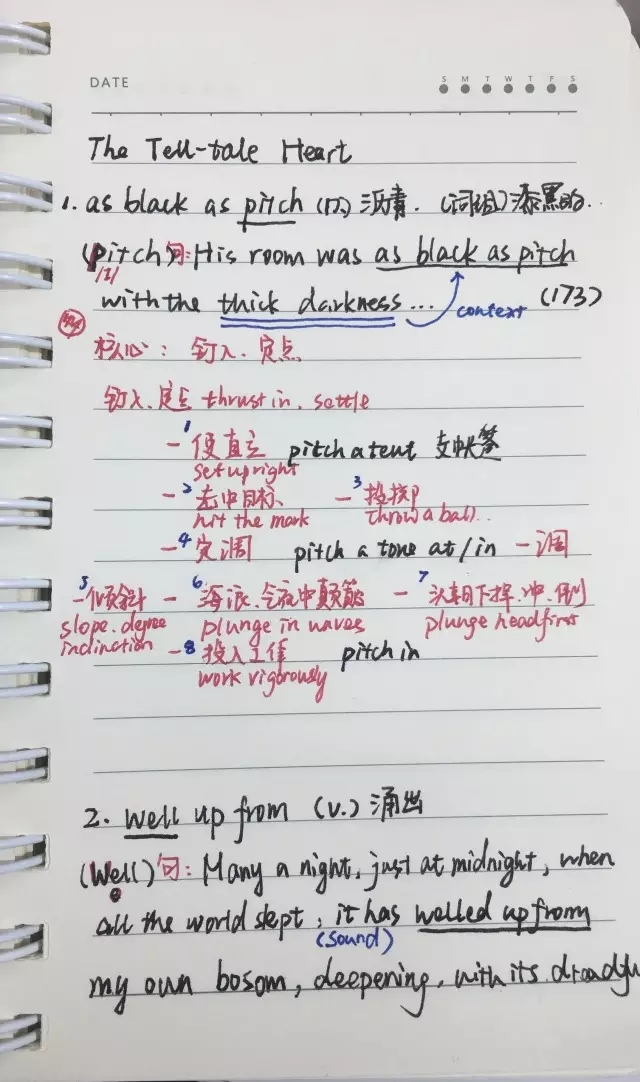 DATE S M T W T F S
The Tell-tale Heart
1. as black as pitch (n) 沥青. (词组)漆黑的.
(pitch) 句: His room was as black as pitch
/ɪ/
with the thick darkness... context (173)
核心: 钉入、定点
钉入、定点 thrust in, settle
-1 使直立 pitch a tent 支帐篷
set upright
-2 击中目标 -3 投掷
hit the mark throw a ball.
-4 定调 pitch a tone at/in 一调
5 -倾斜 -6 海浪、气流中颠簸 -7 头朝下摔、冲、倒
slope.degree plunge in waves plunge headfirst
inclination -8 投入工作 pitch in
work vigorously
2. well up from (v.) 涌出
(well) 句: Many a night, just at midnight, when
all the world slept, it has welled up from
(sound)
my own bosom, deepening, with its dreadfu